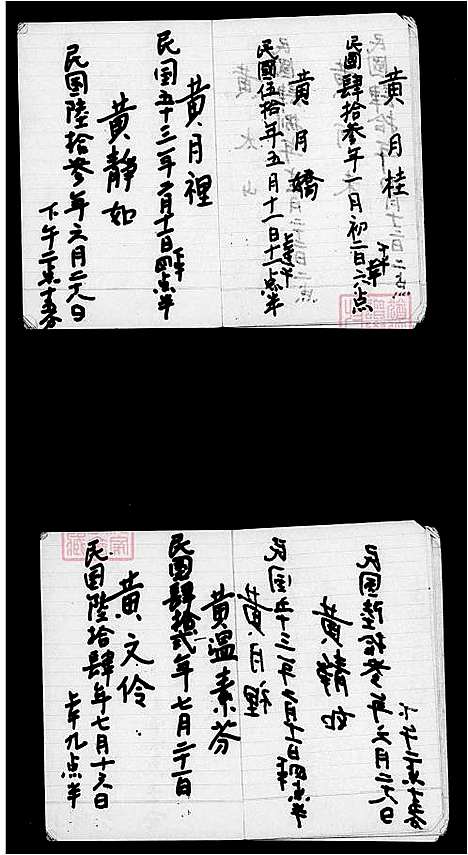 黃月桂
民國肆拾叁年一月初二日六点
下午
黃月嬌
民國伍拾年五月十一日十一点半
黃月裡
民国五十三年六月十一日四点半
下午
黃靜如
民国陸拾叁年六月二六日
下午二点十五分
民国陸拾叁年六月二六日
下午二点十五分
黃靜如
民国五十三年六月十一日四点半
下午
黃月裡
黃溫素芬
民国肆拾貳年七月二十一日
黃文伶
民国陸拾肆年七月十六日
上午九点半